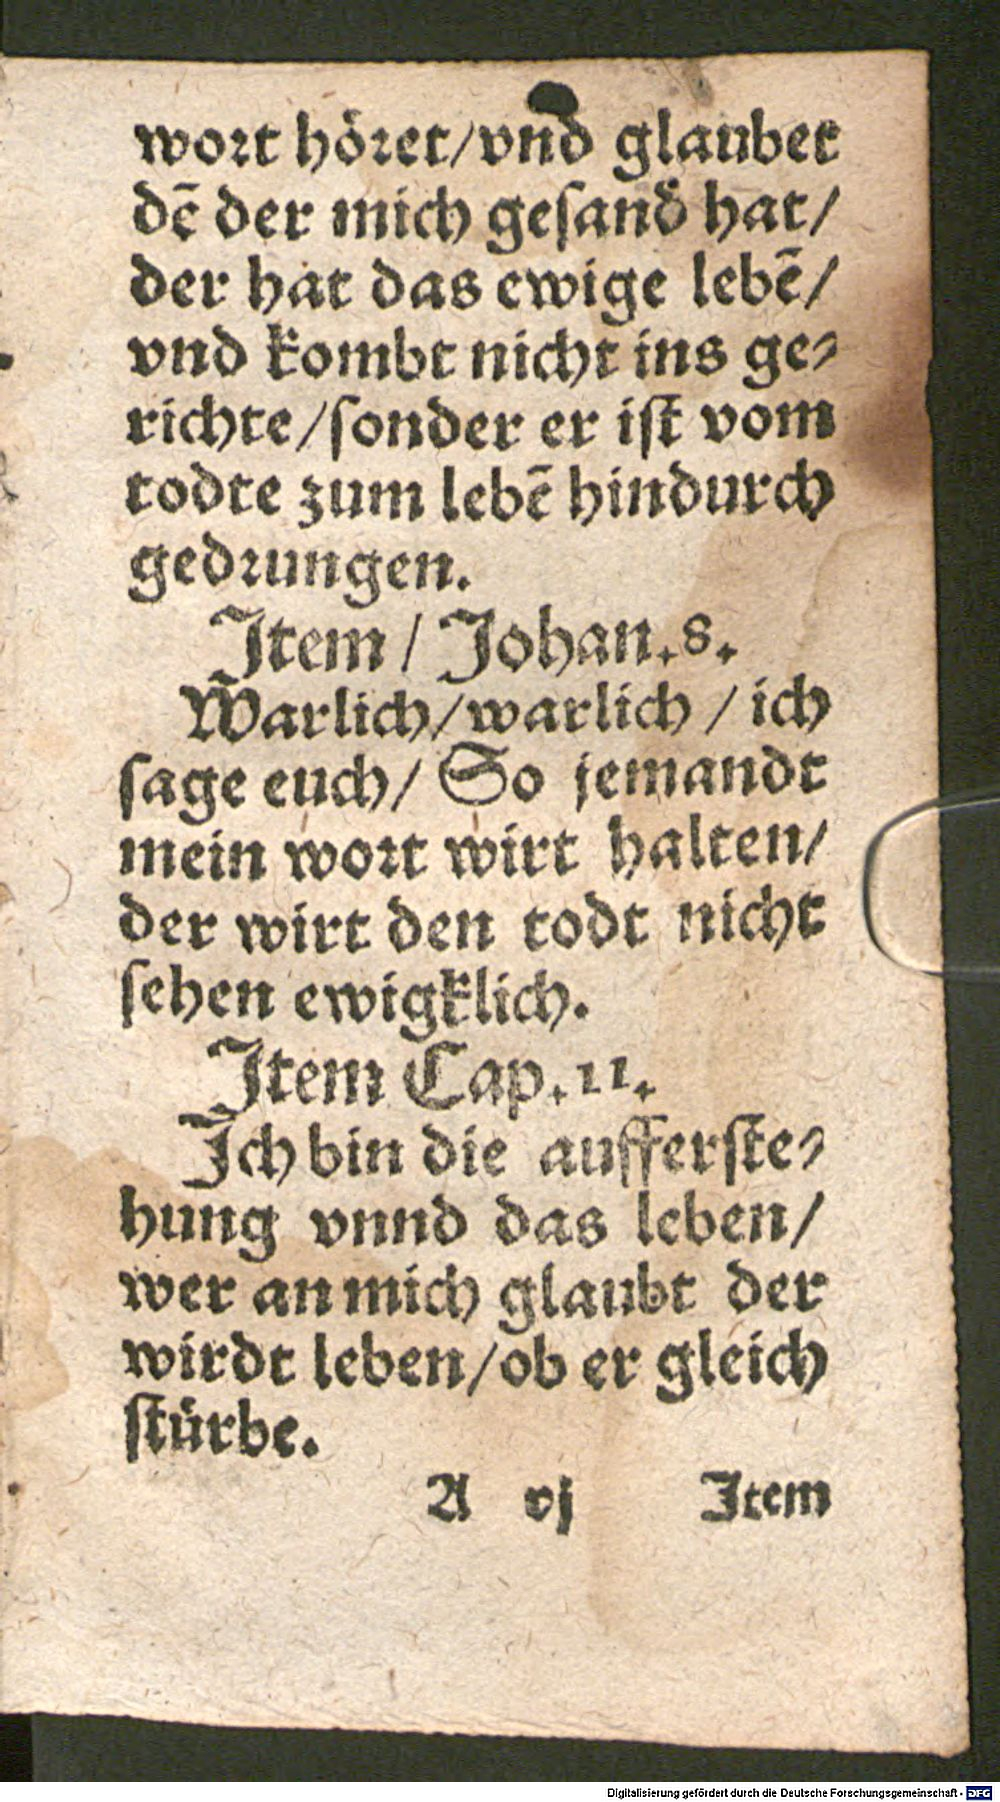 wort höret/vnd glaubet
dē der mich gesand hat/
der hat das ewige lebē/
vnd kombt nicht ins ge-
richte/sonder er ist vom
todte zum lebē hindurch
gedrungen.
Item/ Johan.8.
Warlich/warlich / ich
sage euch/ So jemandt
mein wort wirt halten/
der wirt den todt nicht
sehen ewigklich.
Item Cap.11.
Ich bin die aufferste-
hung vnnd das leben/
wer an mich glaubt der
wirdt leben/ob er gleich
stürbe.
A vj Item
Digitalisierung gefördert durch die Deutsche Forschungsgemeinschaft - DFG